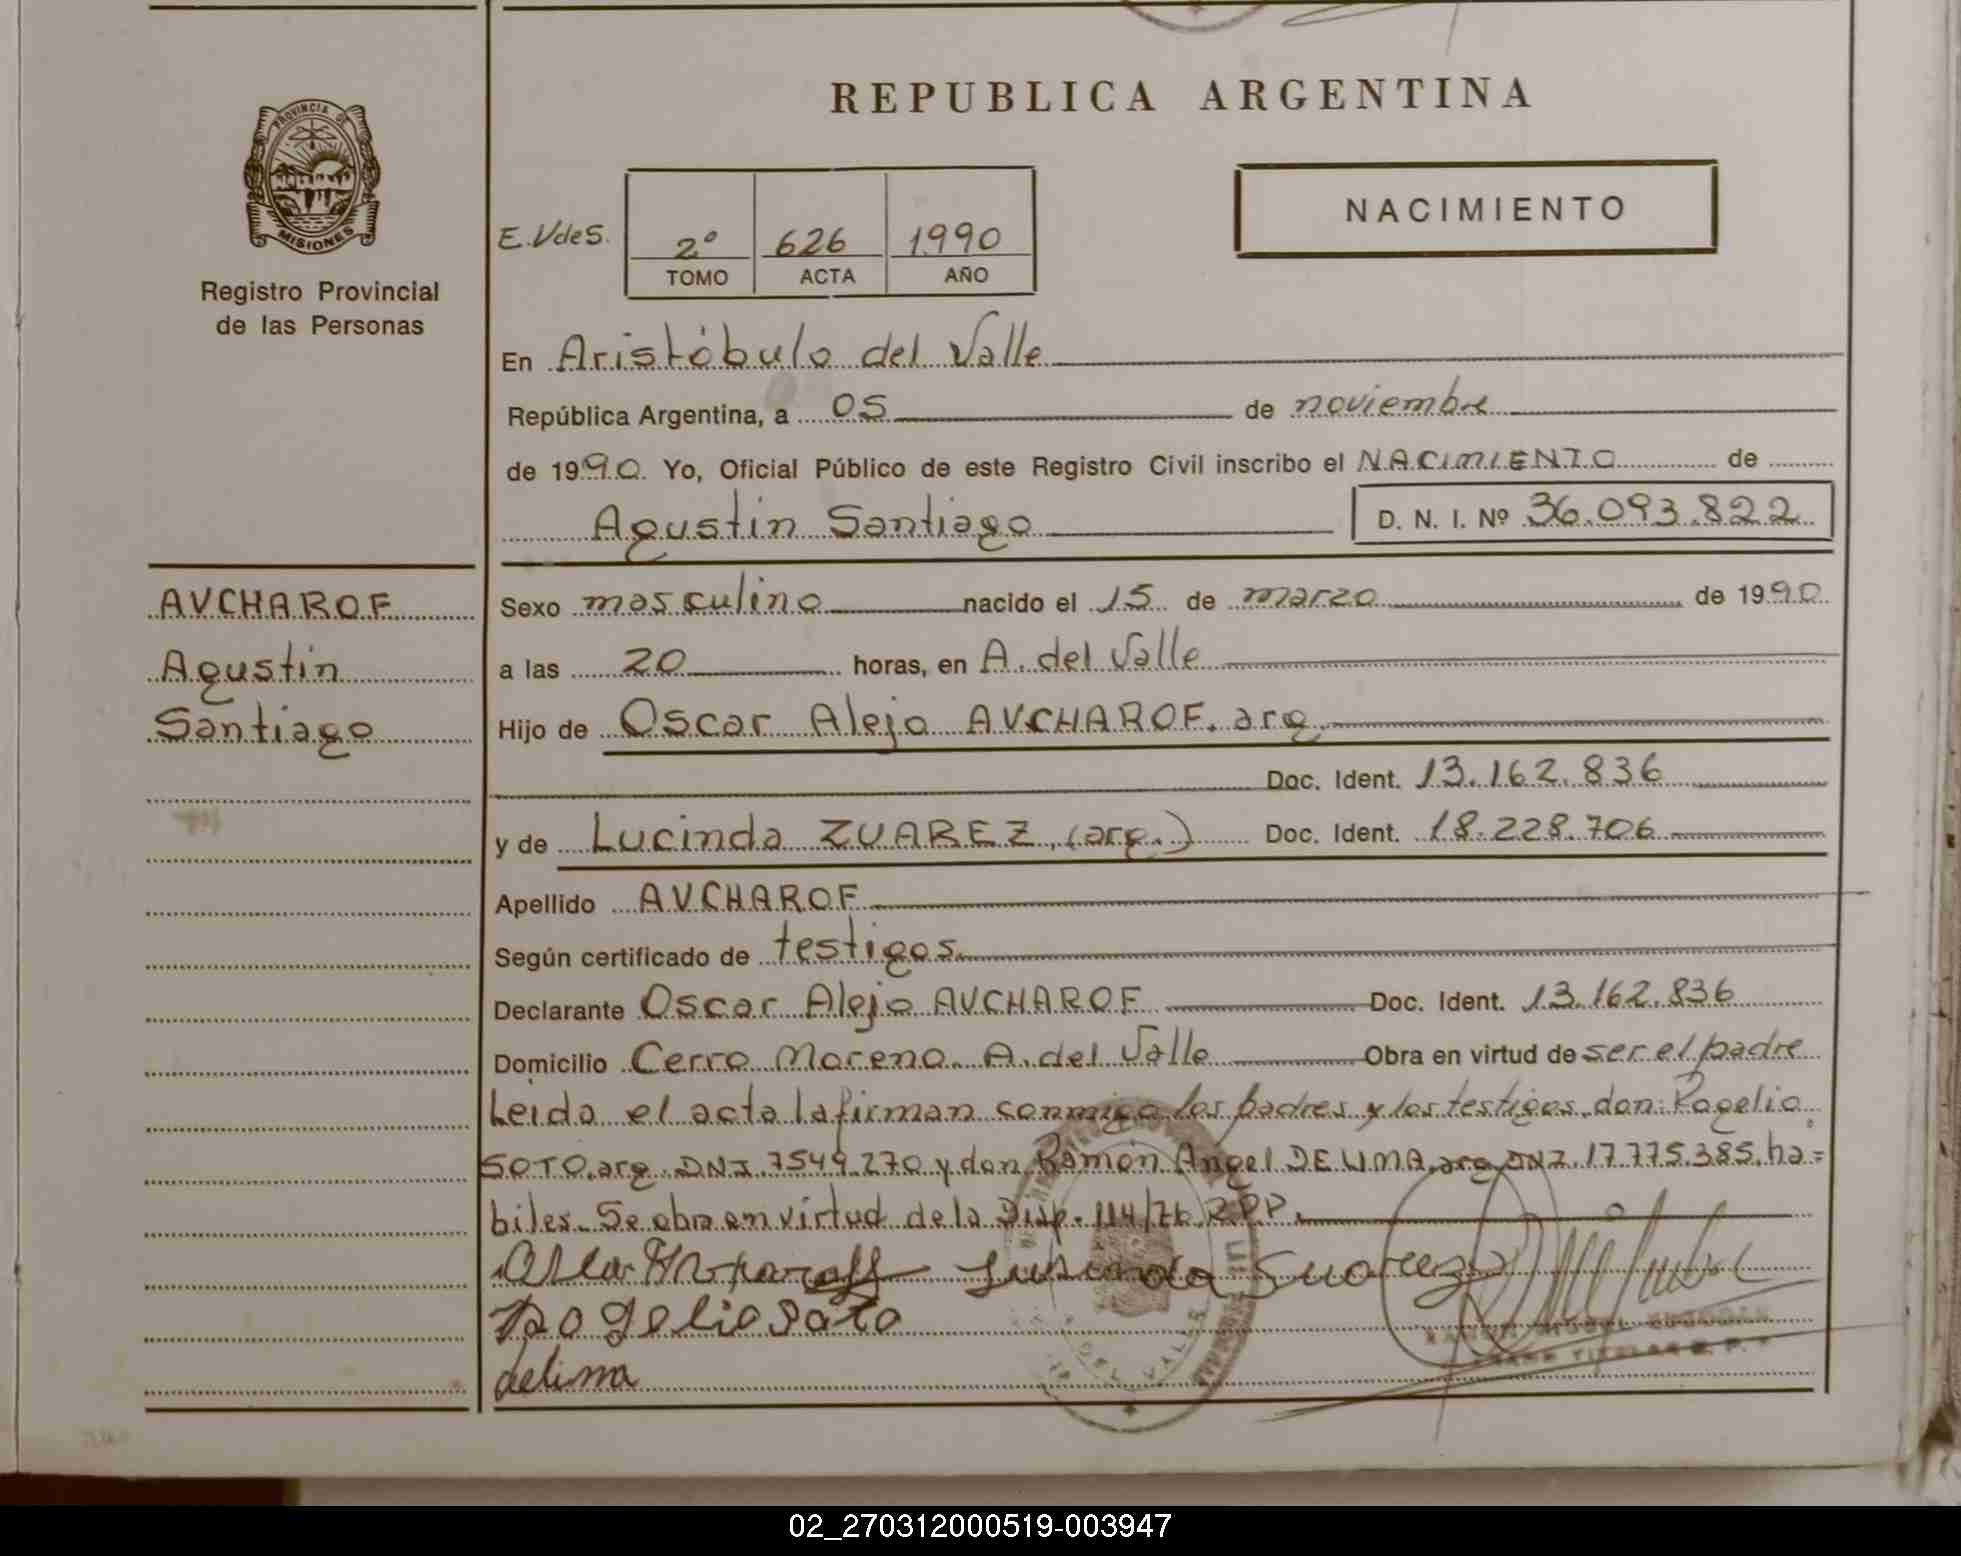 REPUBLICA ARGENTINA
PROVINCIA DE
MISIONES
Registro Provincial
de las Personas
E.VdeS.
2º 626 1990
TOMO ACTA AÑO
NACIMIENTO
En Aristóbulo del Valle
República Argentina, a 05 de noviembre
de 1990. Yo, Oficial Público de este Registro Civil inscribo el NACIMIENTO de
Agustin Santiago D. N. I. Nº 36.093.822
AVCHAROF
Agustin
Santiago
Sexo masculino nacido el 15 de marzo de 1990
a las 20 horas, en A. del Valle
Hijo de Oscar Alejo AVCHAROF. arg
Doc. Ident. 13.162.836
y de Lucinda ZUAREZ, (arg.) Doc. Ident. 18.228.706
Apellido AVCHAROF
Según certificado de testigos
Declarante Oscar Alejo AVCHAROF Doc. Ident. 13.162.836
Domicilio Cerro Moreno. A. del Valle Obra en virtud de ser el padre
Leida el acta la firman conmigo los padres y los testigos. don: Rogelio
SOTO. arg. DNI. 7549.270 y don Ramón Angel DE LIMA. arg DNI. 17.775.385. ha=
biles. Se obra en virtud de la Disp. 114/76 R.P.P.
Suarez
Rogelio Soto
delima
DEL VALLE
02_270312000519-003947